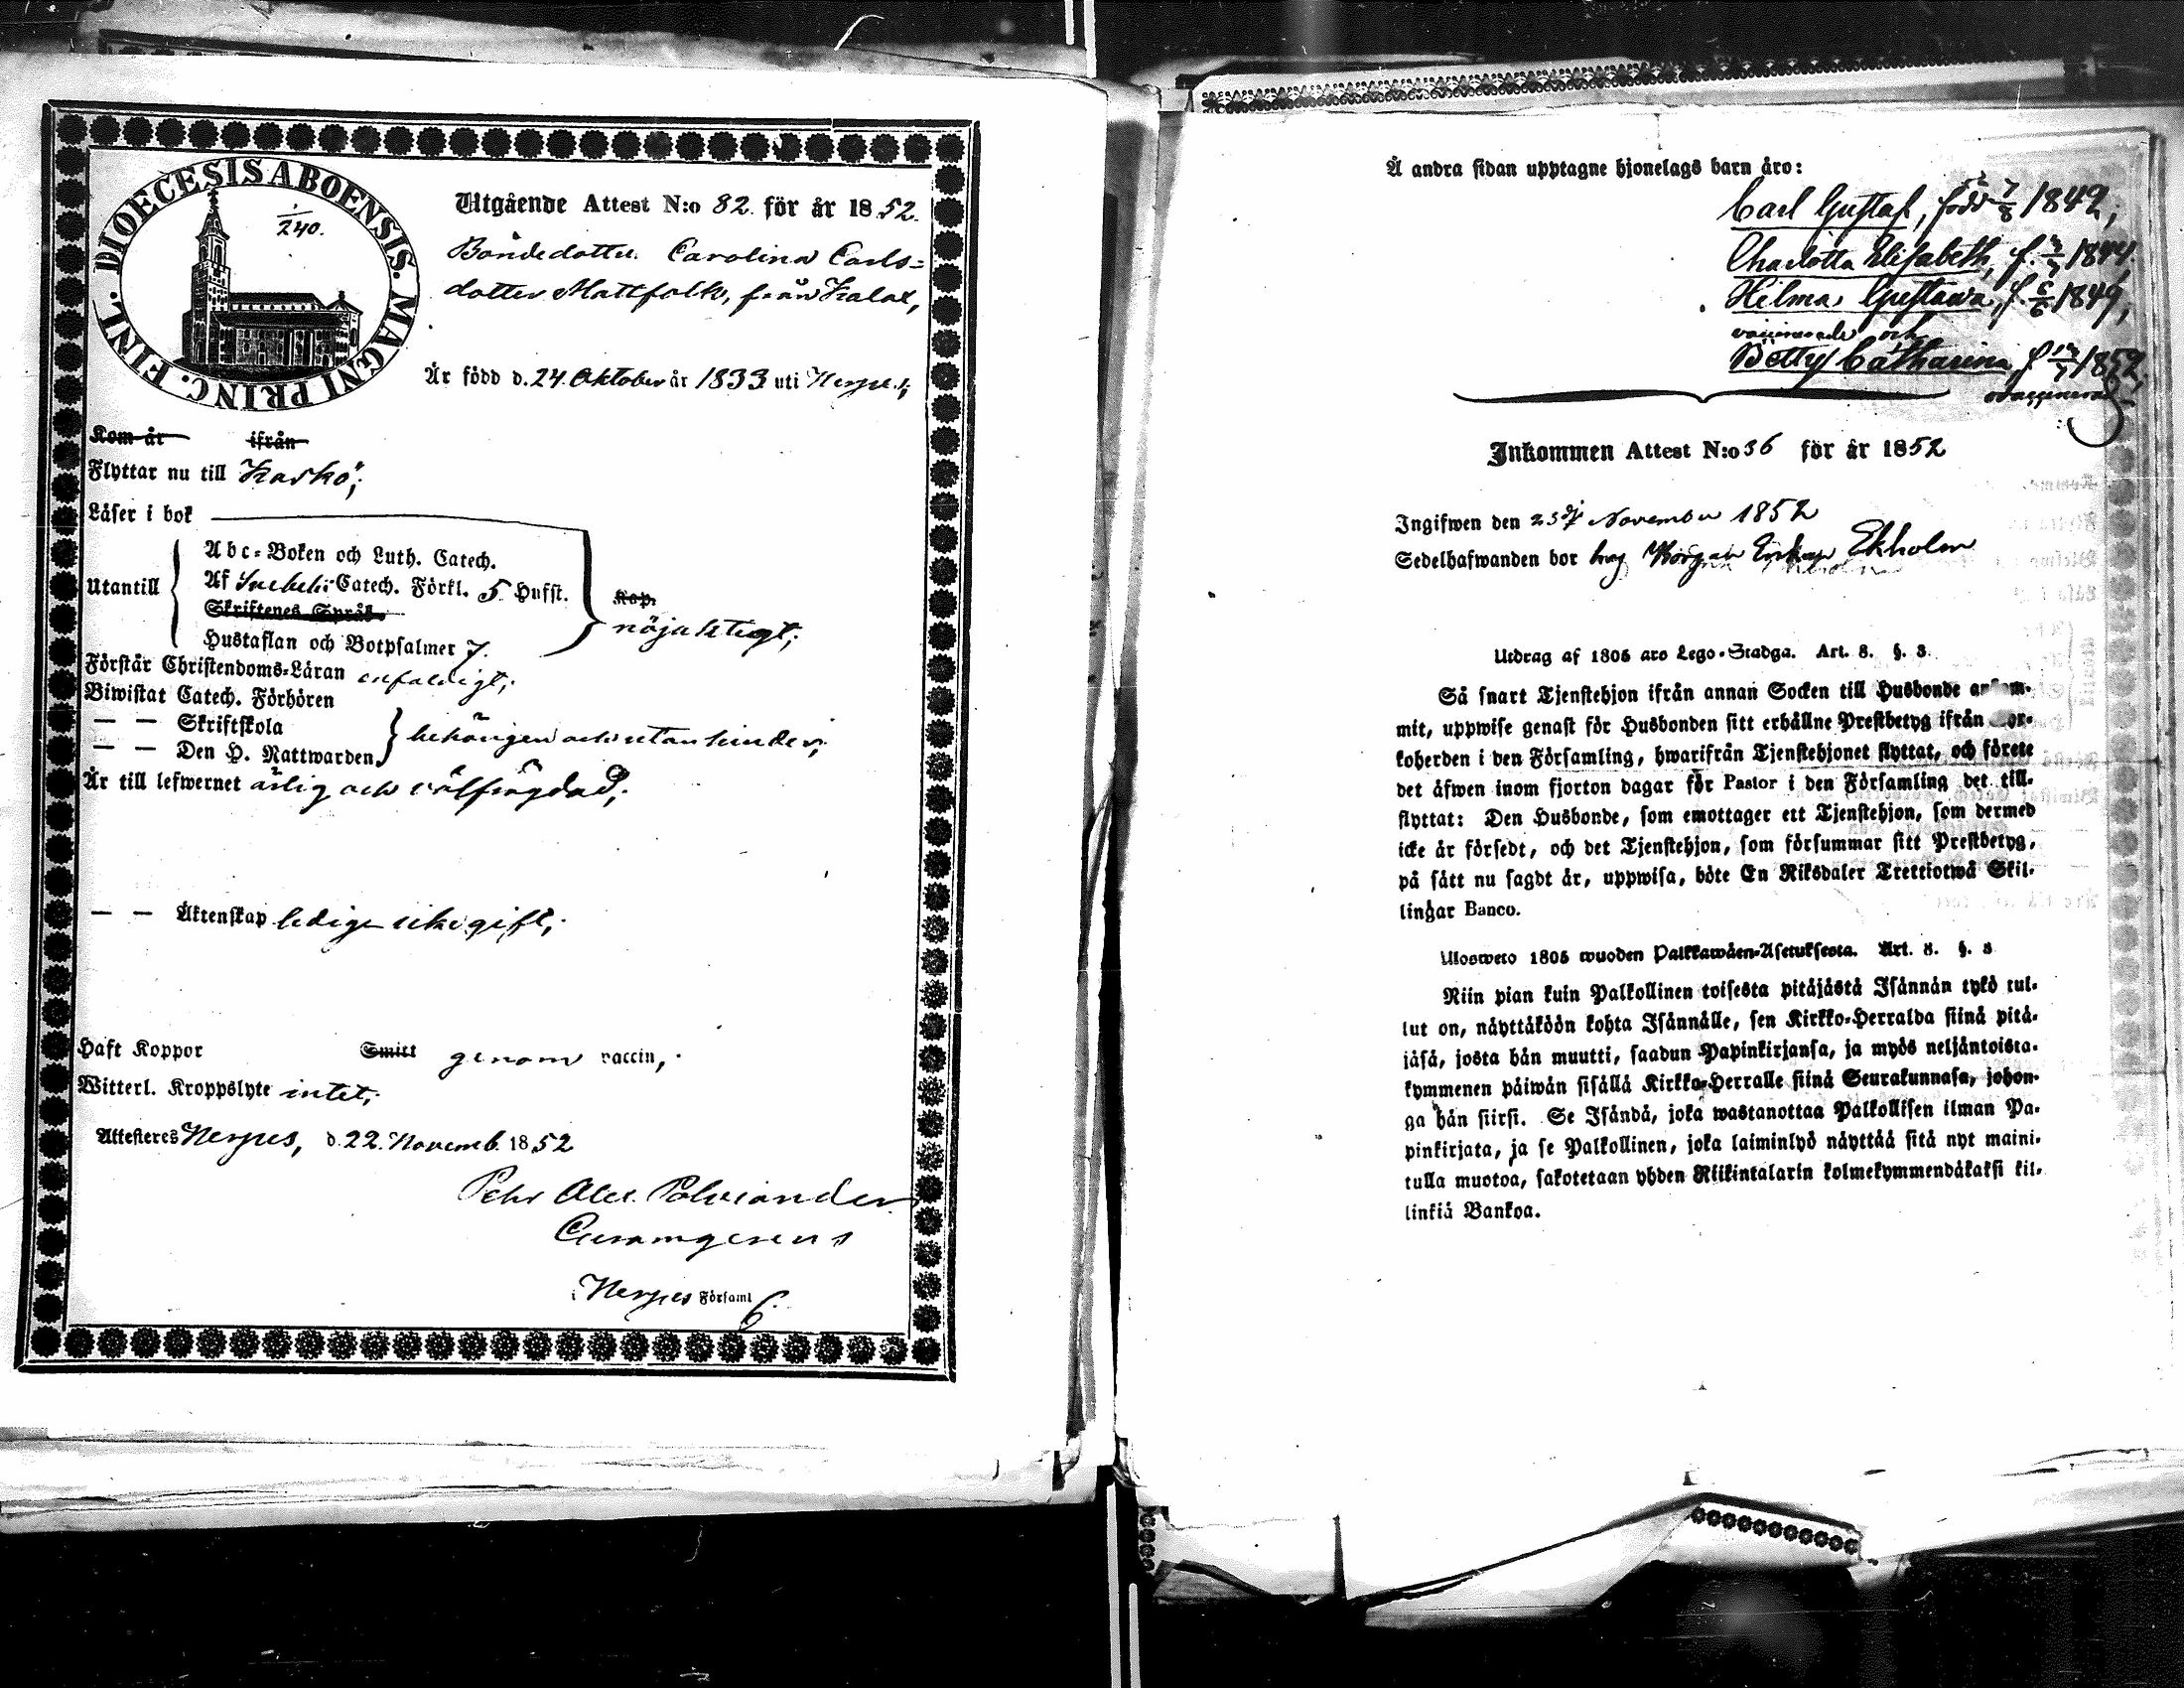 DIOECESIS ABOENSIS. MAGNI PRINC. FINL.
1/240.
Utgående Attest N:o 82. för år 1852.
Bondedotter Carolina Carls=
dotter Mattfolk, från Kalax,
Är född d. 24. Oktober år 1833 uti Nerpes;
Kom år ifrån
Flyttar nu till Kaskö;
Läser i bok
Utantill
Abc-Boken och Luth. Catech.
Af Svebelii Catech. Förkl. 5 Hufst.
Skriftenes Språk
Hustaflan och Botpsalmer 7.
Kap.
nöjaktigt;
Förstår Christendoms-Läran enfaldigt;
Biwistat Catech. Förhören
— — Skriftskola
— — Den H. Nattwarden
behörigen och utan hinder;
Är till lefwernet ärlig och välfrägdad;
— — Äktenskap ledig icke gift;
Haft Koppor Smitt genom vaccin;
Witterl. Kroppslyte intet;
Attesteres Nerpes, d. 22. Novemb. 1852
Pehr Alex. Polviander
Curamgerens
i Nerpes Församl
Å andra sidan upptagne hjonelags barn äro:
Carl Gustaf, född 7/8 1842,
Charlotta Elisabeth, f. 1844,
Hilma Gustava, f. 6/6 1849,
vaccinerade och
Betty Catharina, f. 1852,
ovaccinerad
Inkommen Attest N:o 36 för år 1852
Ingifwen den 25 November 1852
Sedelhafwanden bor hos Borgar Enkan Ekholm
Utdrag af 1805 års Lego-Stadga. Art. 8. §. 3.
Så snart Tjenstehjon ifrån annan Socken till Husbonde ankom-
mit, uppwise genast för Husbonden sitt erhållne Prestbetyg ifrån Kyr-
koherden i den Församling, hwarifrån Tjenstehjonet flyttat, och förete
det äfwen inom fjorton dagar för Pastor i den Församling det till-
flyttat: Den Husbonde, som emottager ett Tjenstehjon, som dermed
icke är försedt, och det Tjenstehjon, som försummar sitt Prestbetyg,
på sätt nu sagdt är, uppwisa, böte En Riksdaler Trettiotwå Skil-
lingar Banco.
Ulosweto 1805 wuoden Palkkawäen-Asetuksesta. Art. 8. §. 3
Niin pian kuin Palkollinen toisesta pitäjästä Isännän tykö tul-
lut on, näyttäköön kohta Isännälle, sen Kirkko-Herralda siinä pitä-
jäsä, josta hän muutti, saadun Papinkirjansa, ja myös neljäntoista-
kymmenen päiwän sisällä Kirkko-Herralle siinä Seurakunnasa, johon-
ga hän siirsi. Se Isändä, joka wastanottaa Palkollisen ilman Pa-
pinkirjata, ja se Palkollinen, joka laiminlyö näyttää sitä nyt maini-
tulla muotoa, sakotetaan yhden Riikintalarin kolmekymmendäkaksi kil-
linkiä Bankoa.